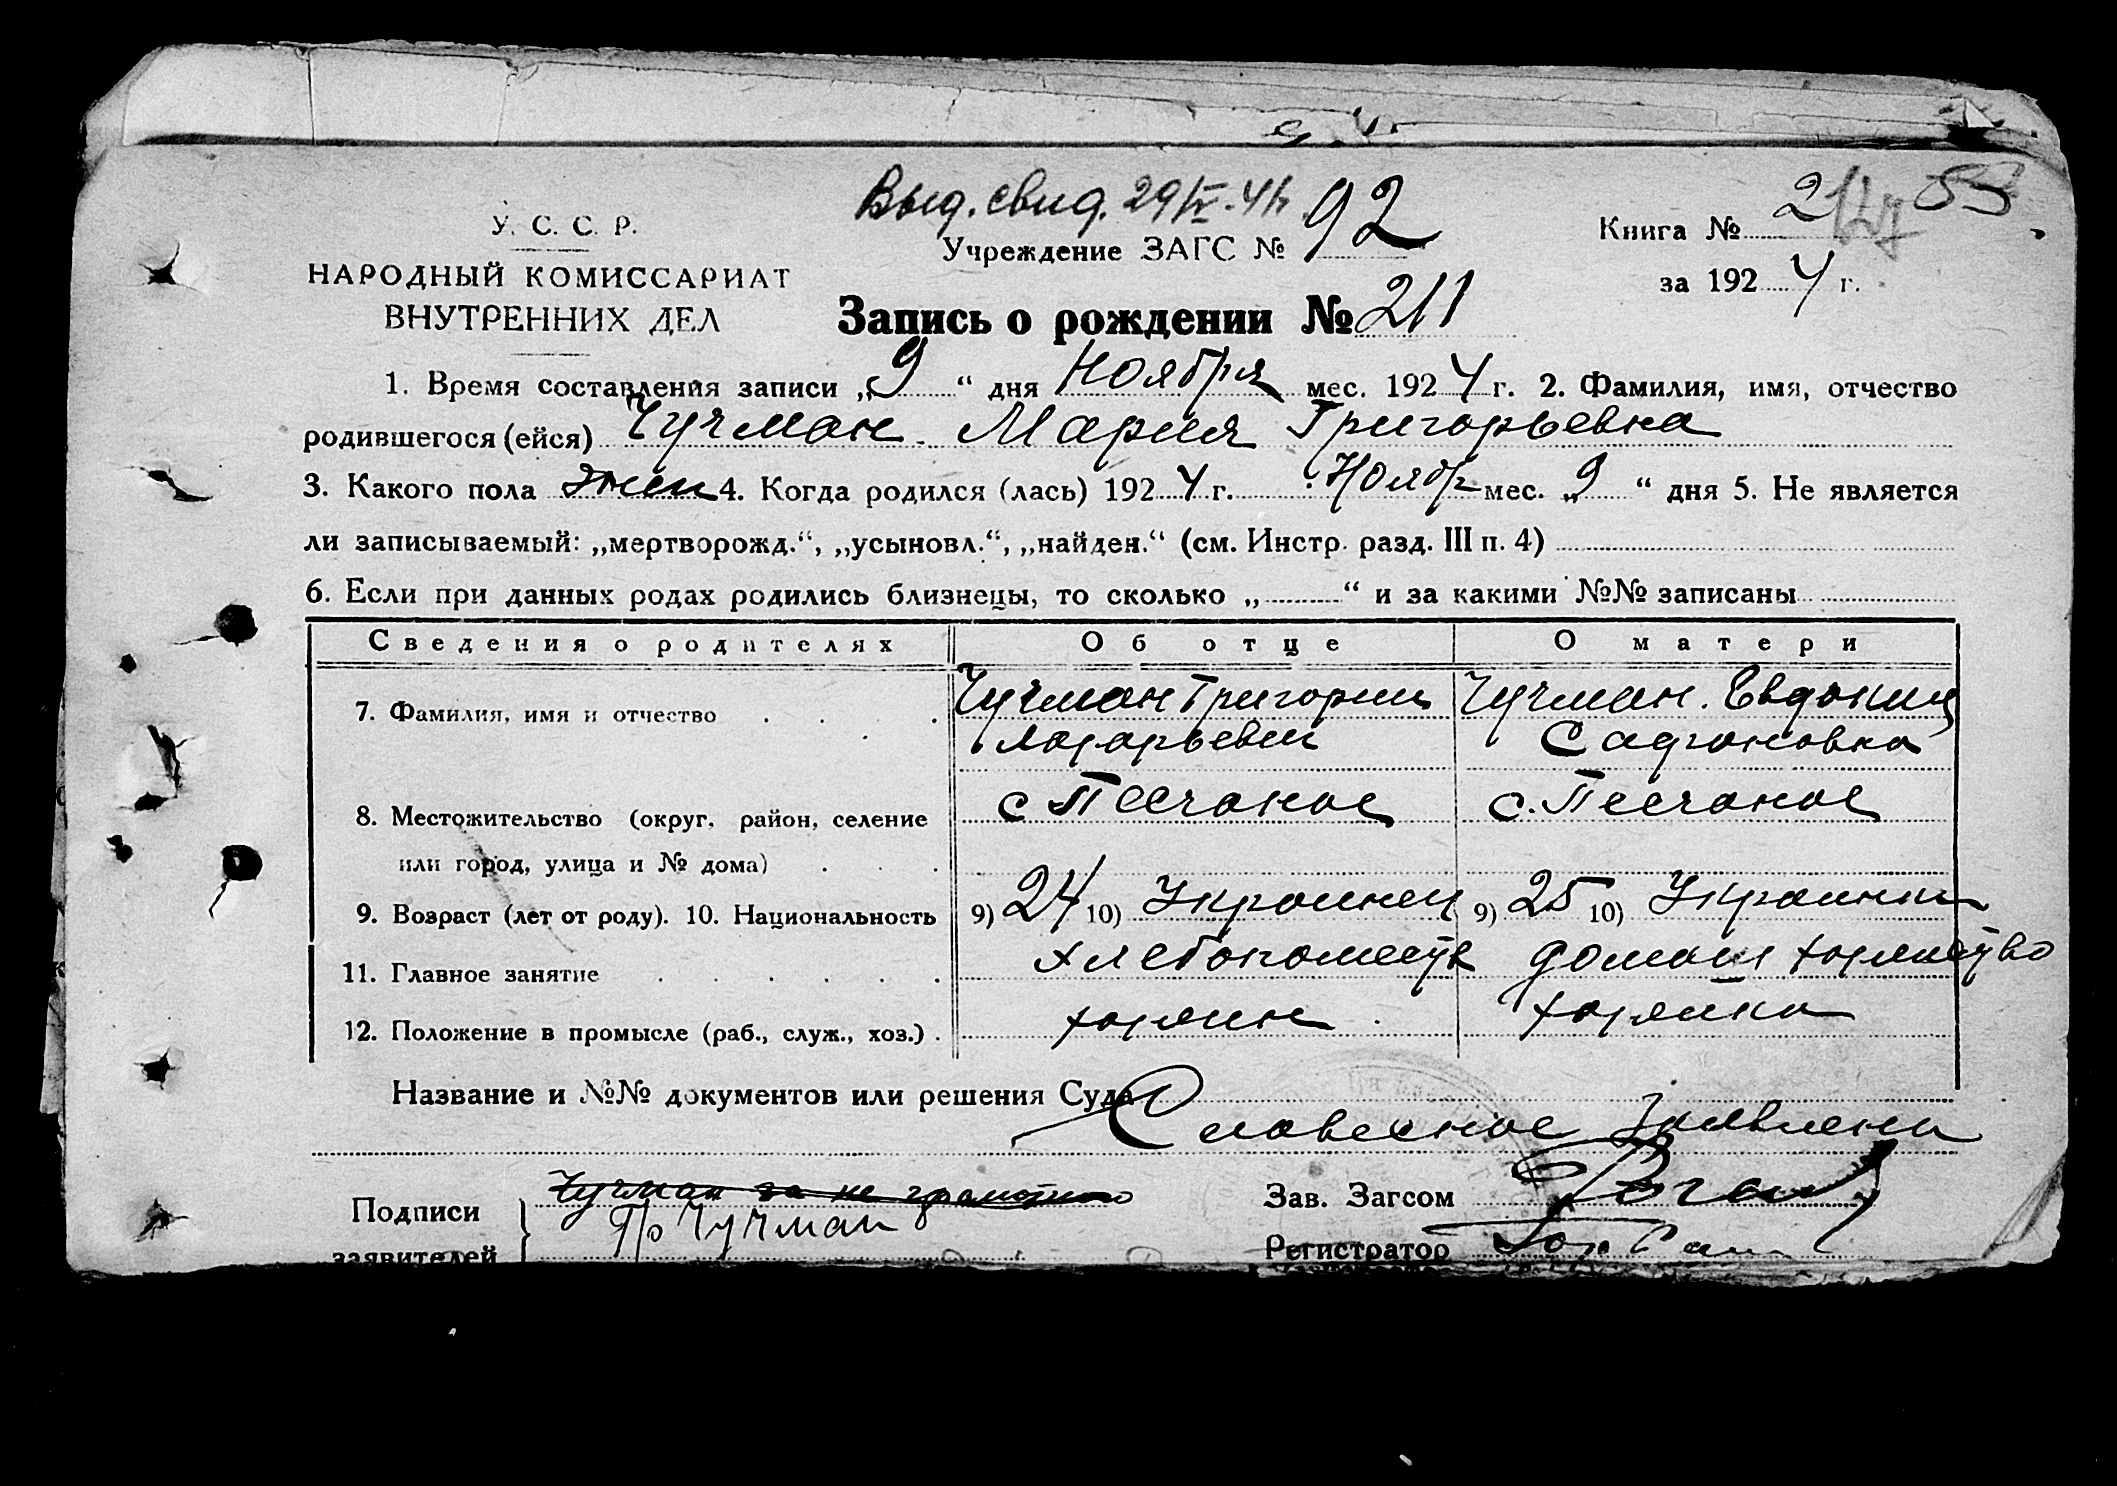 Выд. свид. 29/IV.41г.
У. С. С. Р.
НАРОДНЫЙ КОМИССАРИАТ
ВНУТРЕННИХ ДЕЛ
Учреждение ЗАГС № 92
Книга № 2
за 1924 г.
Запись о рождении № 211
1. Время составления записи „9“ дня Ноября мес. 1924 г. 2. Фамилия, имя, отчество
родившегося (ейся) Чучман Мария Григорьевна
3. Какого пола жен 4. Когда родился (лась) 1924 г. Ноябр мес. „9“ дня 5. Не является
ли записываемый: „мертворожд.“, „усыновл.“, „найден.“ (см. Инстр. разд. III п. 4)
6. Если при данных родах родились близнецы, то сколько „ “ и за какими №№ записаны
Сведения о родителях Об отце О матери
7. Фамилия, имя и отчество Чучман Григорий Чучман. Евдокия
Лазарьевич Сафроновна
8. Местожительство (округ, район, селение с Песчаное с. Песчаное
или город, улица и № дома)
9. Возраст (лет от роду). 10. Национальность 9) 24 10) Украинец 9) 25 10) Украинка
11. Главное занятие хлебопашеств домаш хозяйство
12. Положение в промысле (раб., служ., хоз.) хозяин хозяйка
Название и №№ документов или решения Суда
Словесное заявлени
Подписи Чучман за не грамотного Зав. Загсом
заявителей Гр Чучман Регистратор